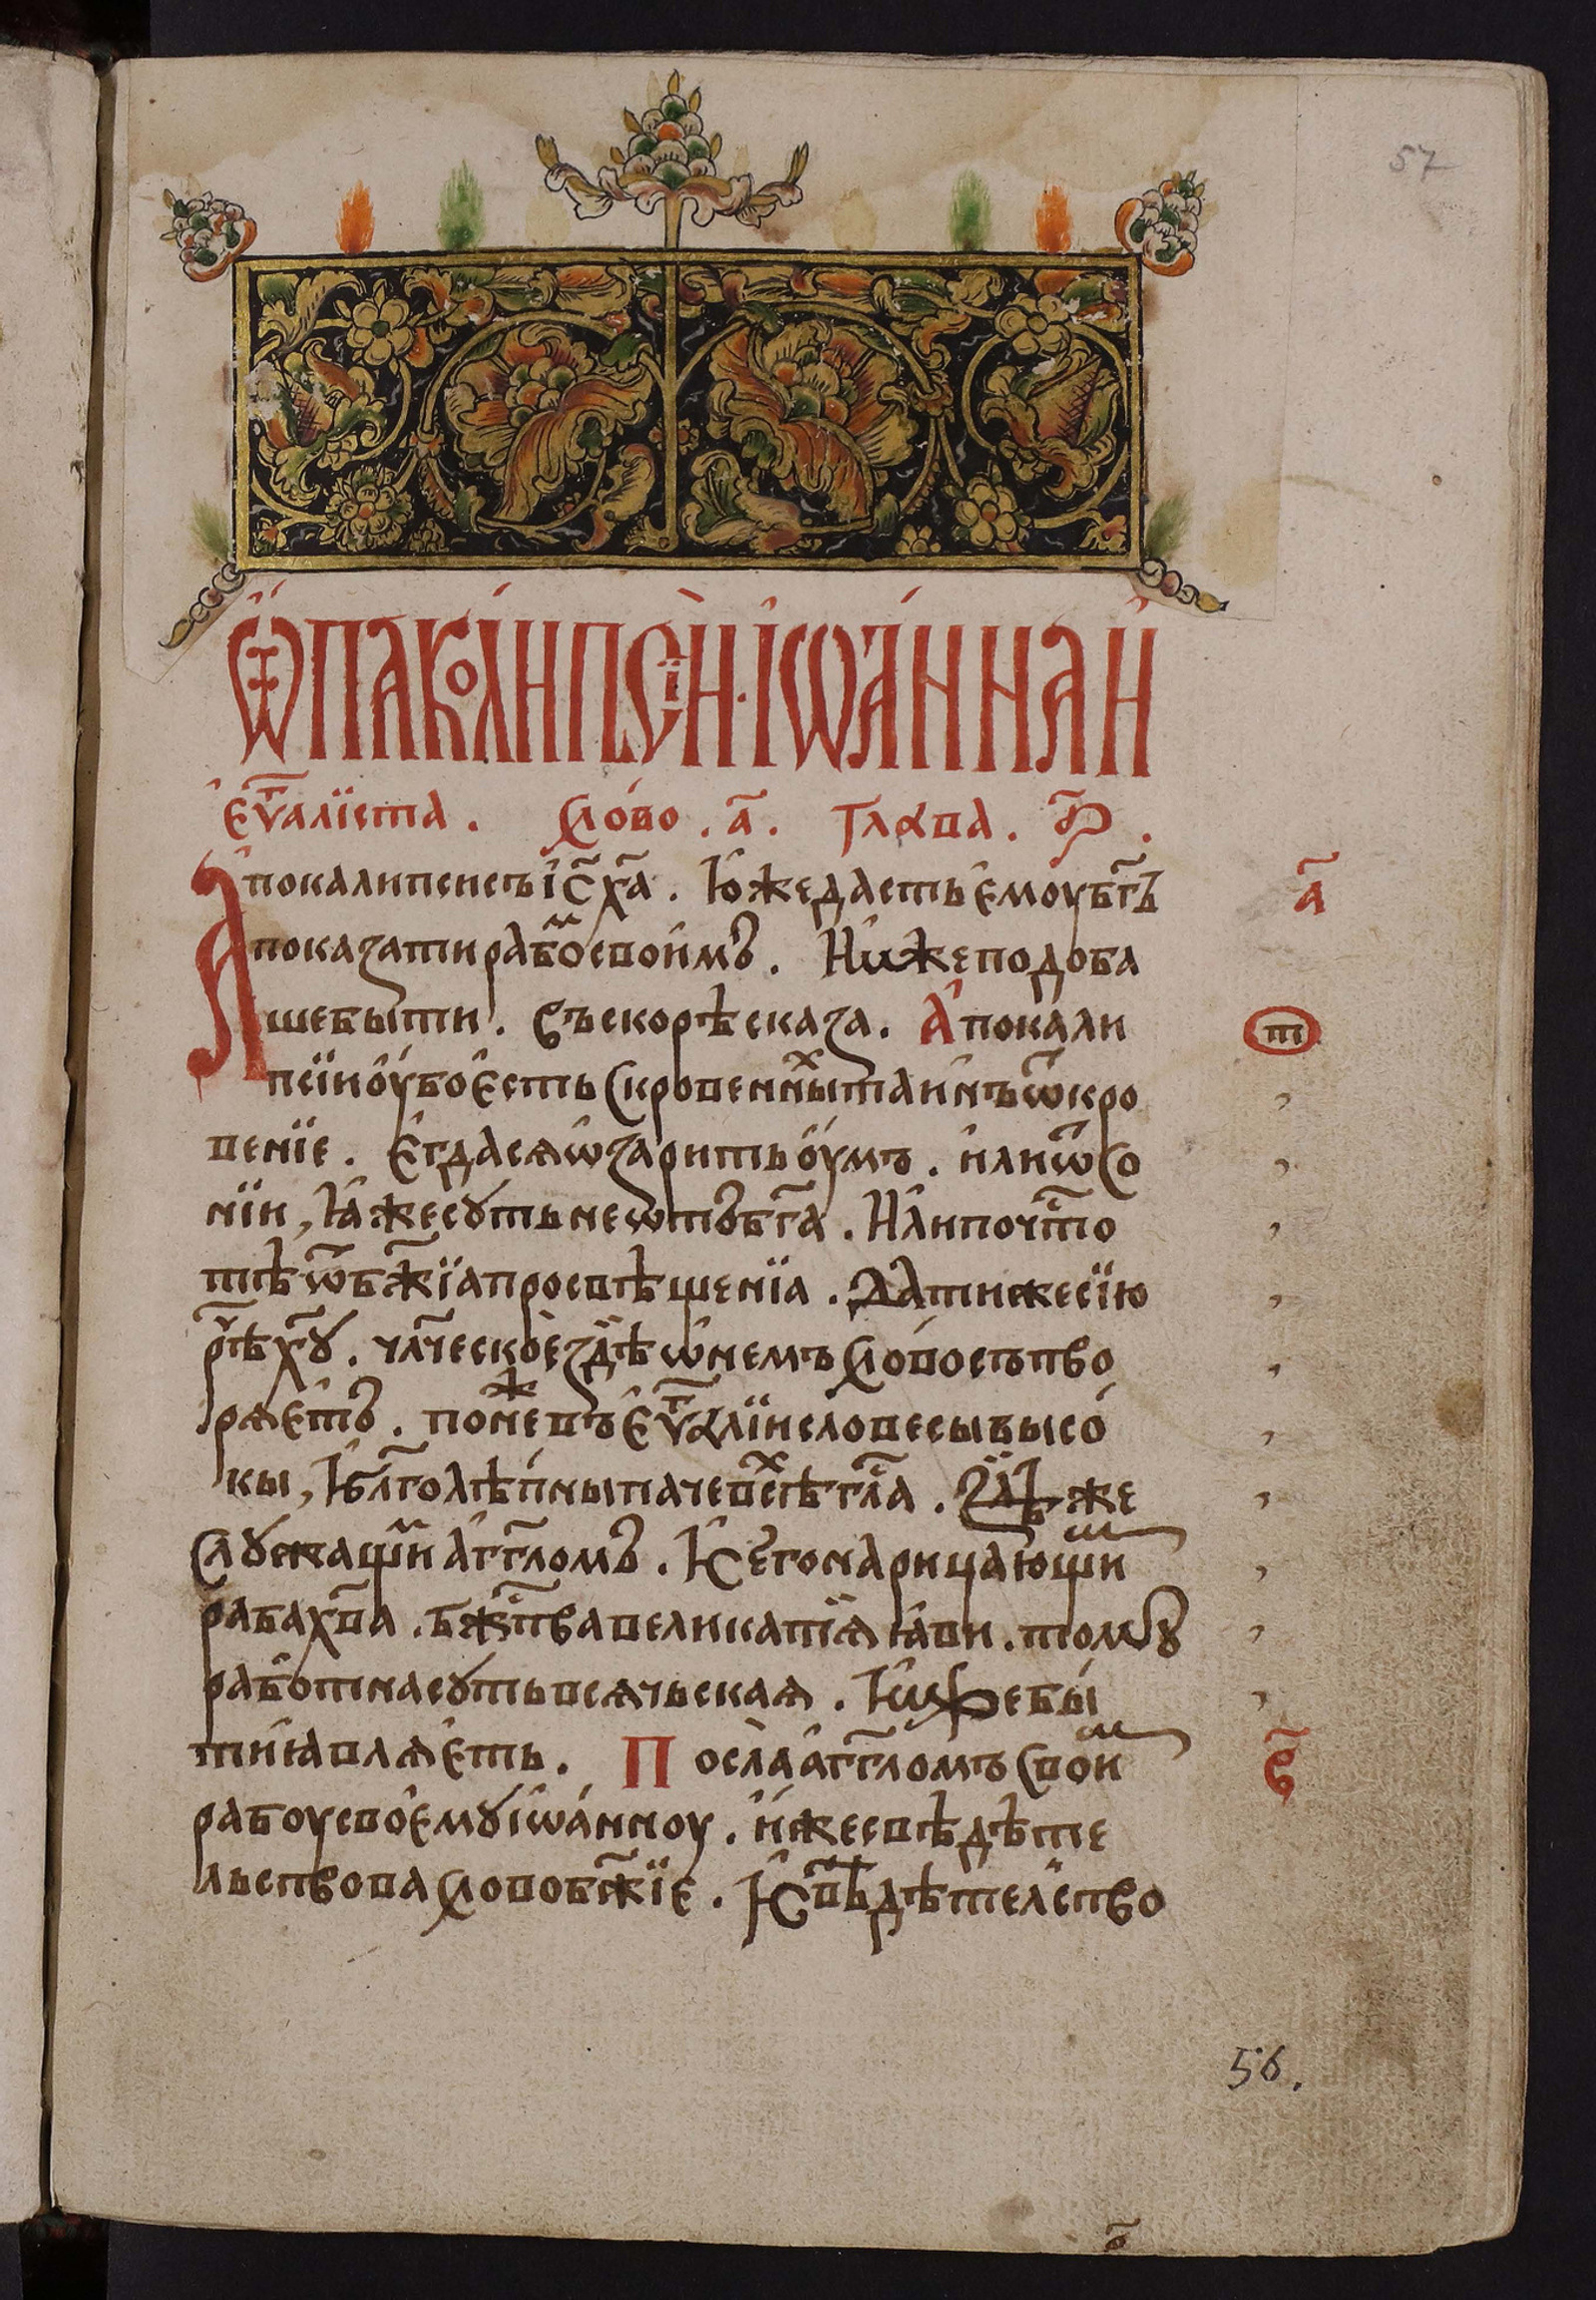 57
Ѿ АПАКОЛИПСІИ · ІѠАННА И
Є҆ѵⷢ҇алїста . Сло́во . а҃ . Глава . р҃ .
Апокалипсисъ і҆с҃ х҃а . Ю҆же дасть є҆моу бг҃ъ
показати рабоⷨ своимъ . И҆ иже подоба
ше быти . въскорѣ сказа . А҆покали
псїи ѹ҆бо є҆сть скровенныⷯ таинъ ѿкро
венїе . Є҆гда сѧ ѡ҆зарить ѹ҆мъ . и҆ли ѿ со
нїи , Ꙗ҆же сꙋть не ѡтъ бг҃а . И҆ли почⷭ҇то
тѣ ѿ бж҃їа просвѣщенїа . Дати же сїю
рⷱ҇ѣ хⷭ҇ꙋ . чл҃ческое здѣ ѡ҆ немъ слово сътво
рѧеть . понеⷤ въ є҆ѵⷢ҇алїи словесы высо
кы , И҆ бл҃голѣпны паче всѣⷯ гл҃а . Здѣ же
Слꙋжащиⷨ а҆гг҃ломъ . И҆ сего нарицающиⷨ
раба хв҃а . бж҃тва великатїѧ ꙗ҆ви . томꙋ
работна сꙋть всѧчьскаѧ . И҆ иже бы
ти ꙗ҆влѧеть . Посла а҆гг҃ломъ своиⷨ
рабоу своє҆мꙋ і҆ѡанноу . и҆же свѣдѣте
льствова слово бж҃їе . И҆ свⷣѣтелство
а҃
т
в҃
56.